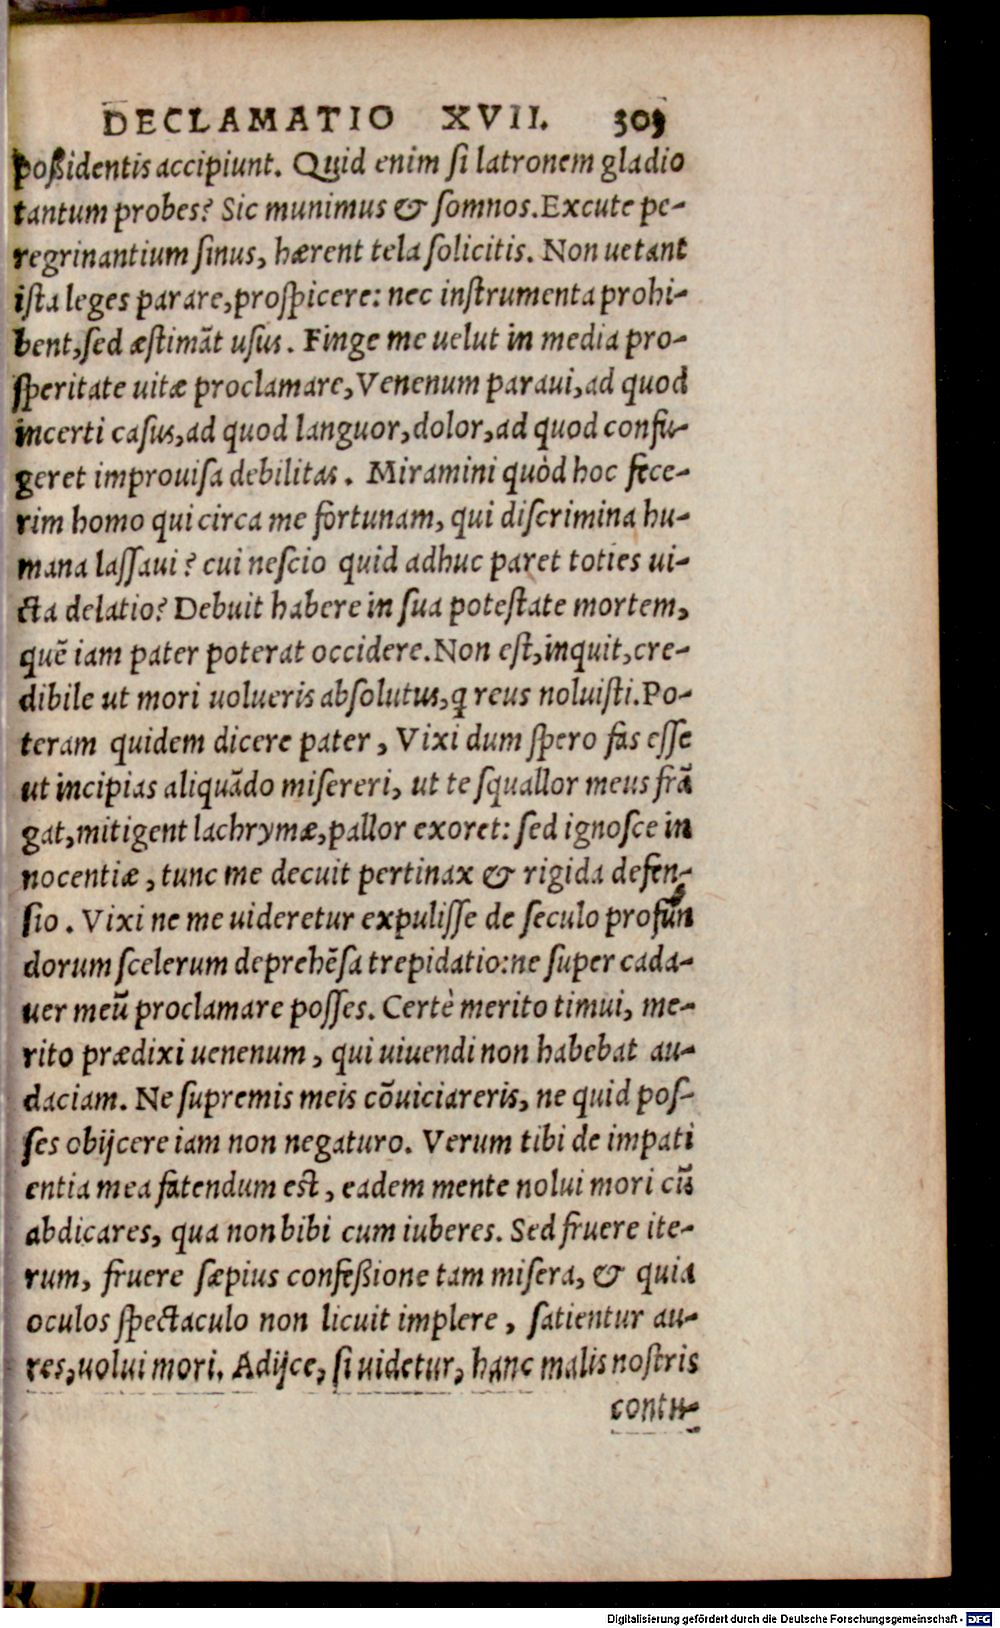 DECLAMATIO XVII. 309
poßidentis accipiunt. Quid enim si latronem gladio
tantum probes? Sic munimus & somnos. Excute pe-
regrinantium sinus, hærent tela solicitis. Non uetant
ista leges parare, prospicere: nec instrumenta prohi-
bent, sed æstimãt usus. Finge me uelut in media pro-
speritate uitæ proclamare, Venenum paraui, ad quod
incerti casus, ad quod languor, dolor, ad quod confu-
geret improuisa debilitas. Miramini quòd hoc fece-
rim homo qui circa me fortunam, qui discrimina hu-
mana lassaui? cui nescio quid adhuc paret toties ui-
cta delatio? Debuit habere in sua potestate mortem,
quẽ iam pater poterat occidere. Non est, inquit, cre-
dibile ut mori uolueris absolutus, q reus noluisti. Po-
teram quidem dicere pater, Vixi dum spero fas esse
ut incipias aliquãdo misereri, ut te squallor meus frã
gat, mitigent lachrymæ, pallor exoret: sed ignosce in
nocentiæ, tunc me decuit pertinax & rigida defen-
sio. Vixi ne me uideretur expulisse de seculo profun
dorum scelerum deprehẽsa trepidatio: ne super cada-
uer meũ proclamare posses. Certè merito timui, me-
rito prædixi uenenum, qui uiuendi non habebat au-
daciam. Ne supremis meis cõuiciareris, ne quid pos-
ses obijcere iam non negaturo. Verum tibi de impati
entia mea fatendum est, eadem mente nolui mori cũ
abdicares, qua non bibi cum iuberes. Sed fruere ite-
rum, fruere sæpius confeßione tam misera, & quia
oculos spectaculo non licuit implere, satientur au-
res, uolui mori. Adijce, si uidetur, hanc malis nostris
contu-
Digitalisierung gefördert durch die Deutsche Forschungsgemeinschaft - DFG